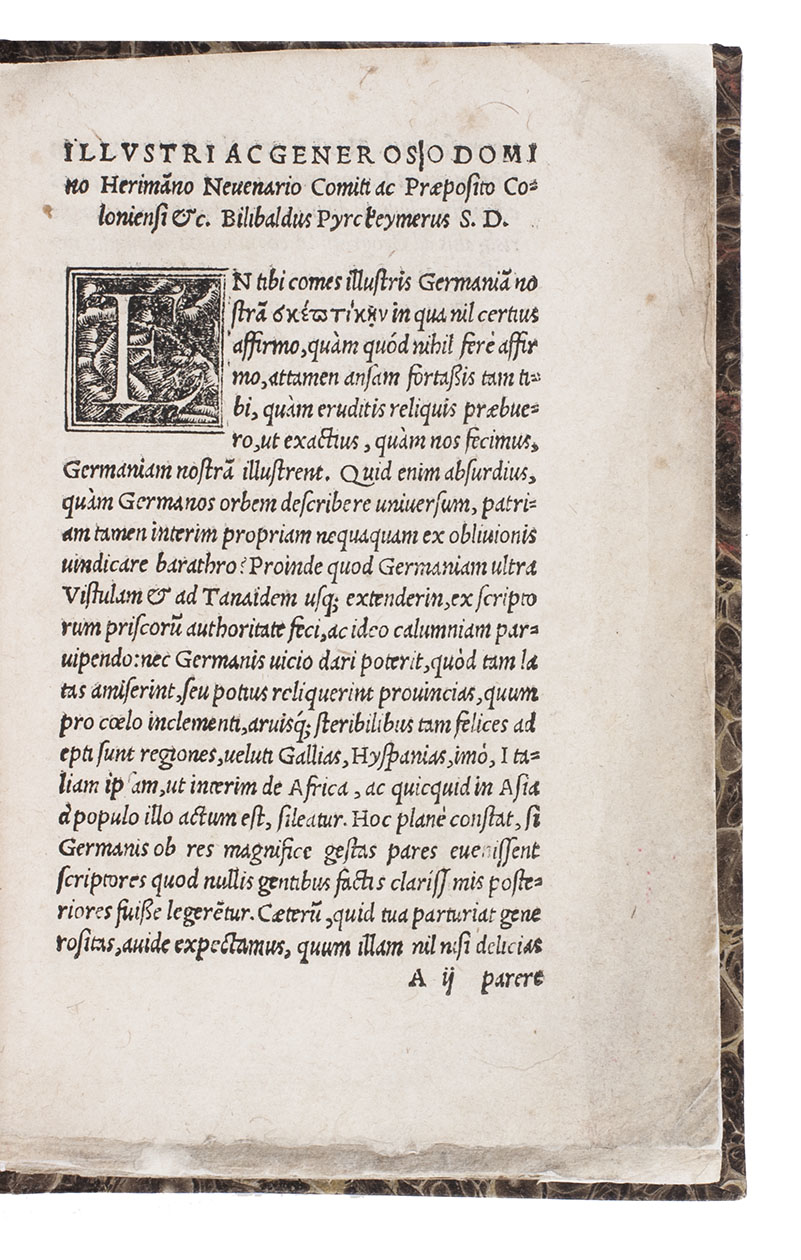 ILLVSTRI AC GENEROSO DOMI
no Herimāno Neuenario Comiti ac Præposito Co⸗
loniensi &c. Bilibaldus Pyrckeymerus S. D.
EN tibi comes illustris Germaniā no
strā σκεπτικὴν in qua nil certius
affirmo, quàm quód nihil ferè affir
mo, attamen ansam fortaßis tam ti⸗
bi, quàm eruditis reliquis præbue⸗
ro, ut exactius, quàm nos fecimus,
Germaniam nostrā illustrent. Quid enim absurdius,
quàm Germanos orbem describere uniuersum, patri⸗
am tamen interim propriam nequaquam ex obliuionis
uindicare barathro? Proinde quod Germaniam ultra
Vistulam & ad Tanaidem usq; extenderin, ex scripto
rum priscorū authoritate feci, ac ideo calumniam par⸗
uipendo: nec Germanis uicio dari poterit, quòd tam la
tas amiserint, seu potius reliquerint prouincias, quum
pro cœlo inclementi, aruisq́; steribilibus tam felices ad
epti sunt regiones, ueluti Gallias, Hyspanias, imò, Ita⸗
liam ipsam, ut interim de Africa, ac quicquid in Asia
à populo illo actum est, sileatur. Hoc planè constat, si
Germanis ob res magnifice gestas pares euenissent
scriptores quod nullis gentibus factis clarissimis poste⸗
riores fuiße legerētur. Cæterū, quid tua parturiat gene
rositas, auide expectamus, quum illam nil nisi delicias
A ij parere